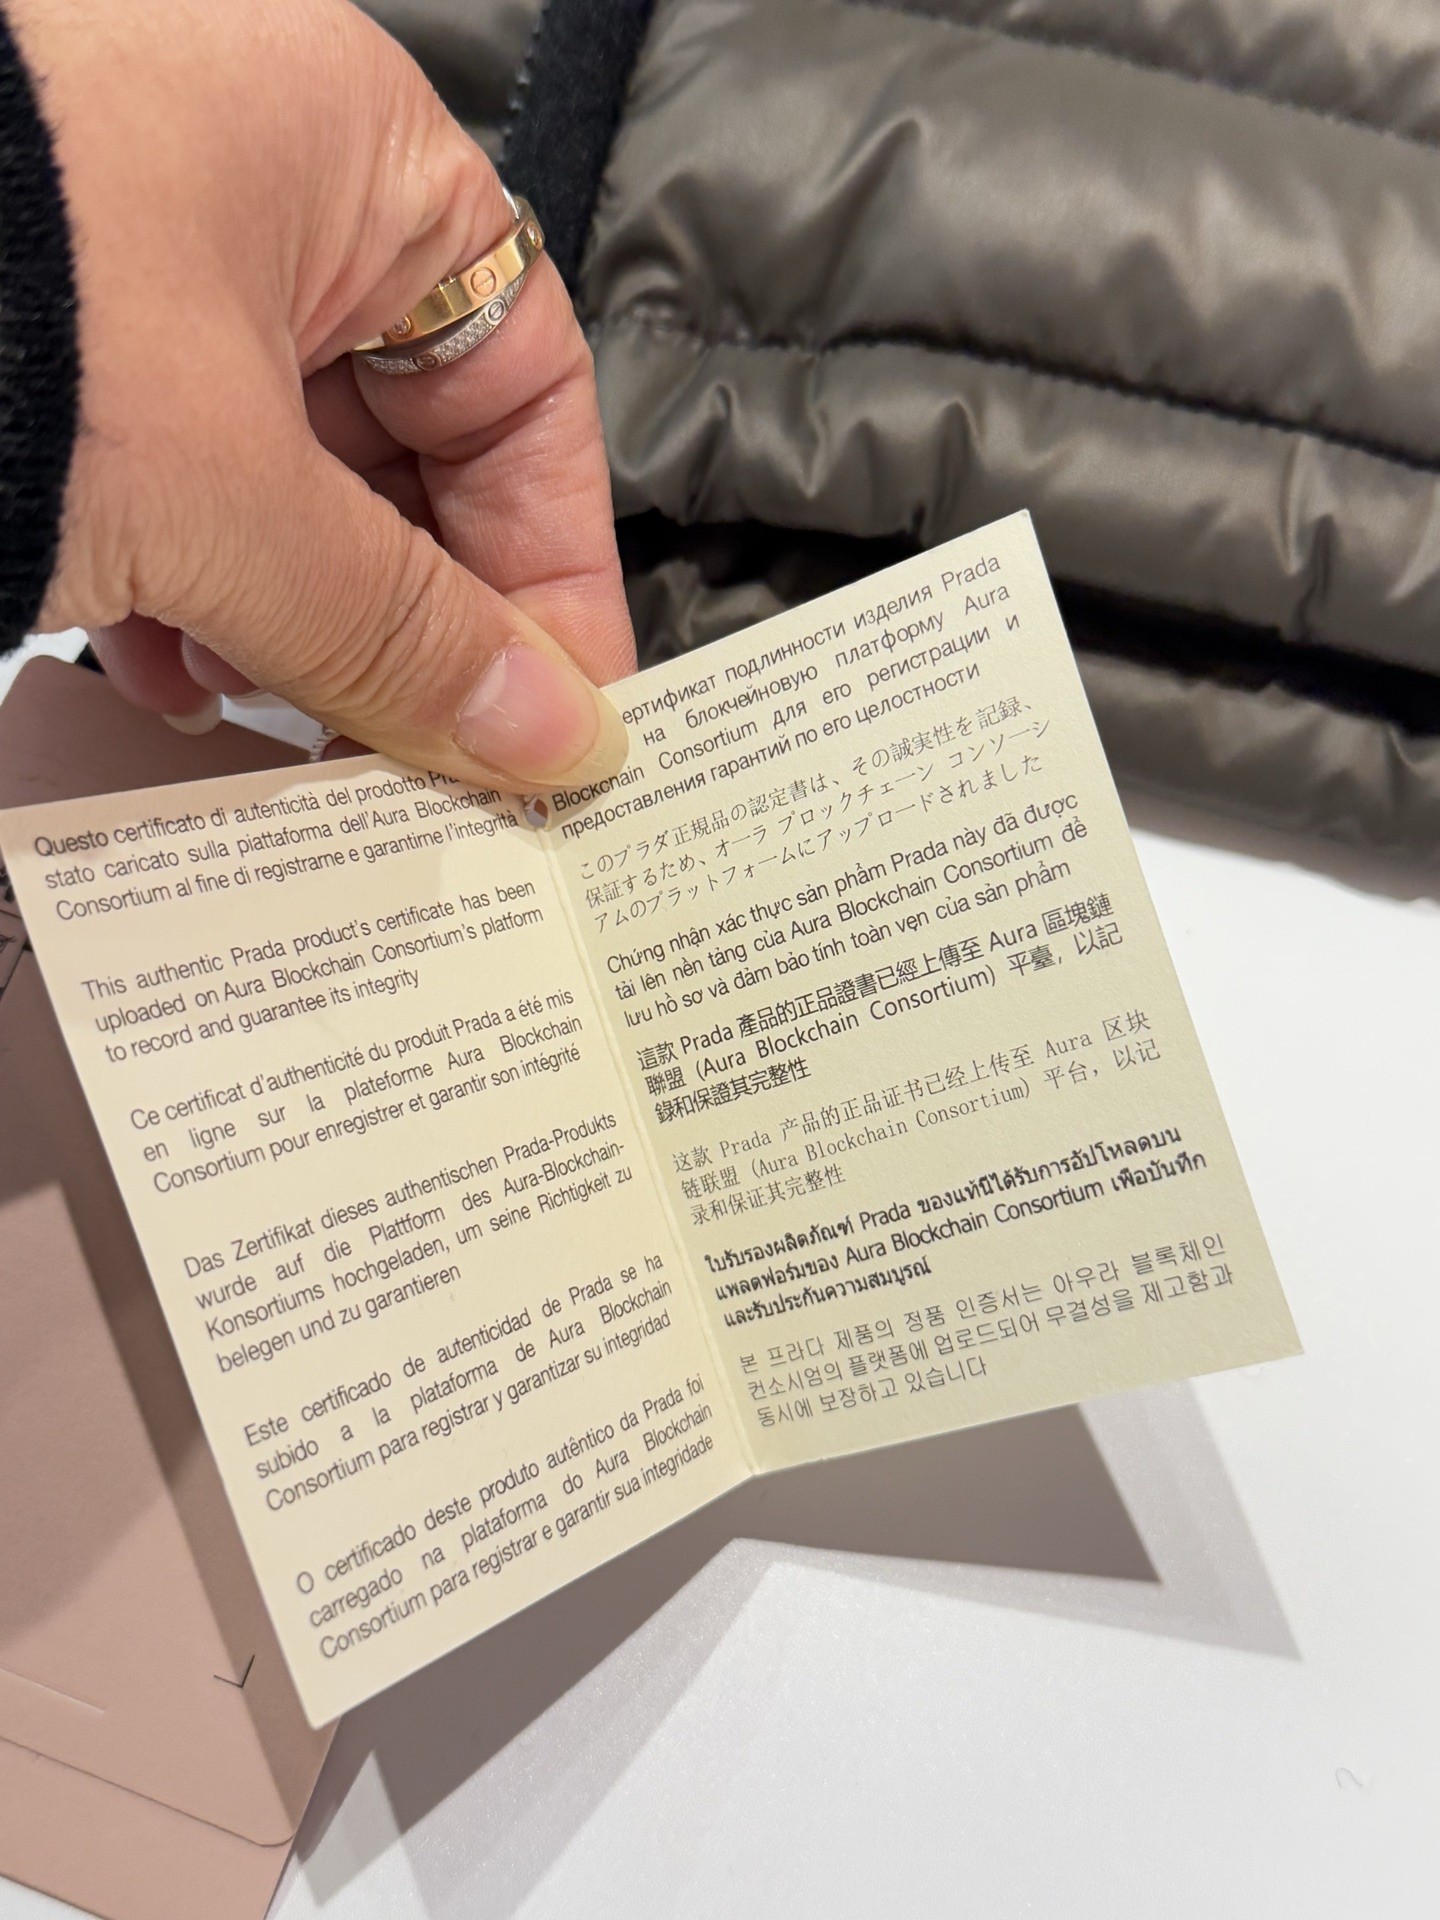 Questo certificato di autenticità del prodotto
stato caricato sulla piattaforma dell'Aura Blockchain
Consortium al fine di registrarne e garantirne l'integrità
This authentic Prada product's certificate has been
uploaded on Aura Blockchain Consortium's platform
to record and guarantee its integrity
Ce certificat d'authenticité du produit Prada a été mis
en ligne sur la plateforme Aura Blockchain
Consortium pour enregistrer et garantir son intégrité
Das Zertifikat dieses authentischen Prada-Produkts
wurde auf die Plattform des Aura-Blockchain-
Konsortiums hochgeladen, um seine Richtigkeit zu
belegen und zu garantieren
Este certificado de autenticidad de Prada se ha
subido a la plataforma de Aura Blockchain
Consortium para registrar y garantizar su integridad
O certificado deste produto autêntico da Prada foi
carregado na plataforma do Aura Blockchain
Consortium para registrar e garantir sua integridade
ертификат подлинности изделия Prada
на блокчейновую платформу Aura
Blockchain Consortium для его регистрации и
предоставления гарантий по его целостности
このプラダ正規品の認定書は、その誠実性を記録、
保証するため、オーラ ブロックチェーン コンソーシ
アムのプラットフォームにアップロードされました
Chứng nhận xác thực sản phẩm Prada này đã được
tải lên nền tảng của Aura Blockchain Consortium để
lưu hồ sơ và đảm bảo tính toàn vẹn của sản phẩm
這款 Prada 產品的正品證書已經上傳至 Aura 區塊鏈
聯盟 (Aura Blockchain Consortium) 平臺，以記
錄和保證其完整性
这款 Prada 产品的正品证书已经上传至 Aura 区块
链联盟 (Aura Blockchain Consortium) 平台，以记
录和保证其完整性
ใบรับรองผลิตภัณฑ์ Prada ของแท้นี้ได้รับการอัปโหลดบน
แพลตฟอร์มของ Aura Blockchain Consortium เพื่อบันทึก
และรับประกันความสมบูรณ์
본 프라다 제품의 정품 인증서는 아우라 블록체인
컨소시엄의 플랫폼에 업로드되어 무결성을 제고함과
동시에 보장하고 있습니다